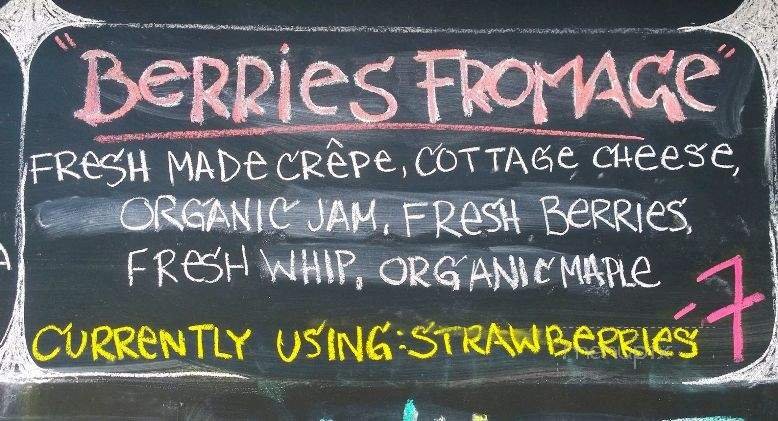 "BERRIES FROMAGE"
FRESH MADE CRÊPE, COTTAGE CHEESE,
ORGANIC JAM, FRESH BERRIES,
FRESH WHIP, ORGANIC MAPLE
CURRENTLY USING: STRAWBERRIES -7